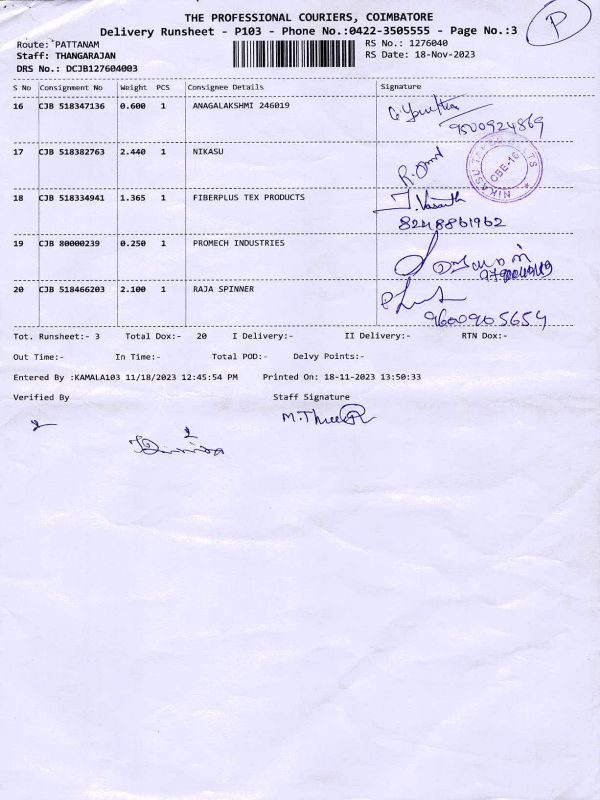 THE PROFESSIONAL COURIERS, COIMBATORE
Delivery Runsheet - P103 - Phone No.:0422-3505555 - Page No.:3
P
Route: PATTANAM
RS No.: 1276040
Staff: THANGARAJAN
RS Date: 18-Nov-2023
DRS No.: DCJB127604003
S No Consignment No Weight PCS Consignee Details Signature
16 CJB 518347136 0.600 1 ANAGALAKSHMI 246019
9500924869
17 CJB 518382763 2.440 1 NIKASU
CBE-16
18 CJB 518334941 1.365 1 FIBERPLUS TEX PRODUCTS
J. Vasanth
8248861962
19 CJB 80000239 0.250 1 PROMECH INDUSTRIES
20 CJB 518466203 2.100 1 RAJA SPINNER
9600905654
Tot. Runsheet:- 3 Total Dox:- 20 I Delivery:- II Delivery:- RTN Dox:-
Out Time:- In Time:- Total POD:- Delvy Points:-
Entered By :KAMALA103 11/18/2023 12:45:54 PM Printed On: 18-11-2023 13:50:33
Verified By Staff Signature